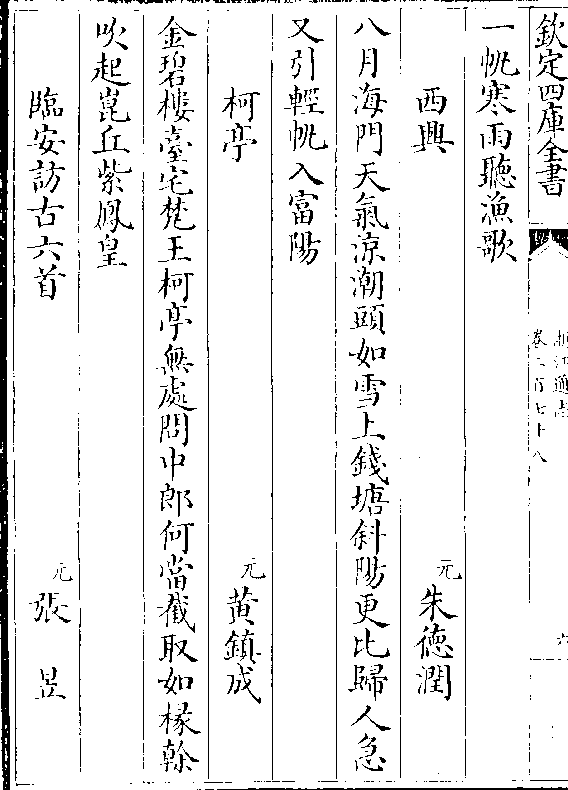 欽定四庫全書
浙江通志
卷二百七十八
六
一帆寒雨聽漁歌
西興
元朱徳潤
八月海門天氣凉潮頭如雪上錢塘斜陽更比歸人急
又引輕帆入富陽
柯亭
元黄鎮成
金碧樓臺宅梵王柯亭無處問中郎何當截取如椽榦
吹起崑丘紫鳳皇
臨安訪古六首
元張昱